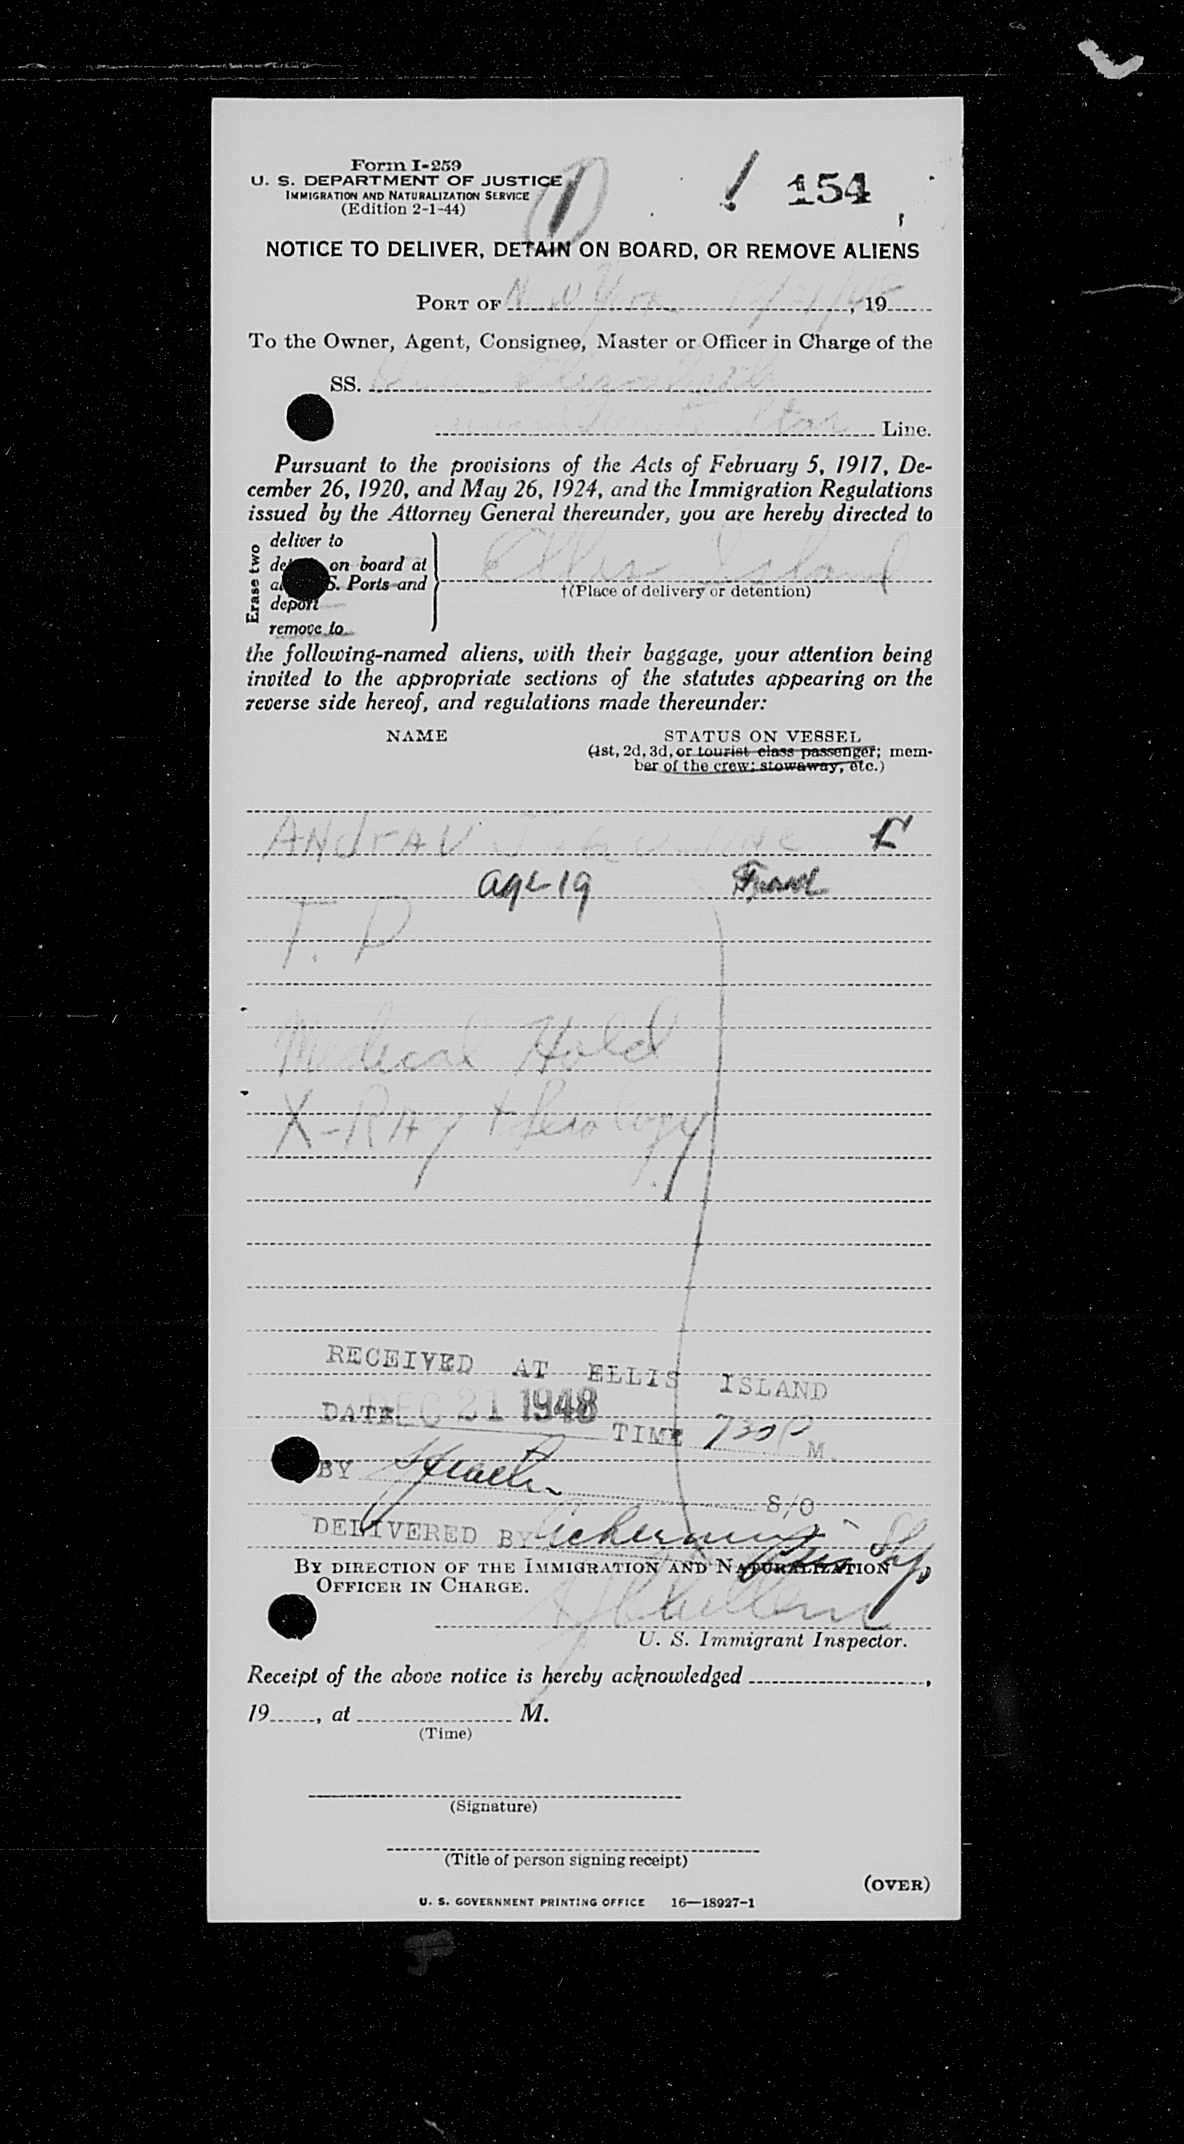 Form I-259
U. S. DEPARTMENT OF JUSTICE
IMMIGRATION AND NATURALIZATION SERVICE
(Edition 2-1-44)
! 154
NOTICE TO DELIVER, DETAIN ON BOARD, OR REMOVE ALIENS
PORT OF N. Y. 12/21/48, 19
To the Owner, Agent, Consignee, Master or Officer in Charge of the
SS. Elizabeth
Star Line.
Pursuant to the provisions of the Acts of February 5, 1917, De-
cember 26, 1920, and May 26, 1924, and the Immigration Regulations
issued by the Attorney General thereunder, you are hereby directed to
Erase two
deliver to
on board at
S. Ports and
deport
remove to
Ellis Island
†(Place of delivery or detention)
the following-named aliens, with their baggage, your attention being
invited to the appropriate sections of the statutes appearing on the
reverse side hereof, and regulations made thereunder:
NAME STATUS ON VESSEL
(1st, 2d, 3d, or tourist class passenger; mem-
ber of the crew; stowaway, etc.)
ANdrAU
age 19
T. D
Medical Hold
X-RAy + Serology
RECEIVED AT ELLIS ISLAND
DATE DEC 21 1948 TIME 730 P M.
BY S/O
DELIVERED BY
BY DIRECTION OF THE IMMIGRATION AND NATURALIZATION
OFFICER IN CHARGE.
U. S. Immigrant Inspector.
Receipt of the above notice is hereby acknowledged ,
19 , at M.
(Time)
(Signature)
(Title of person signing receipt)
(OVER)
U. S. GOVERNMENT PRINTING OFFICE 16—18927-1